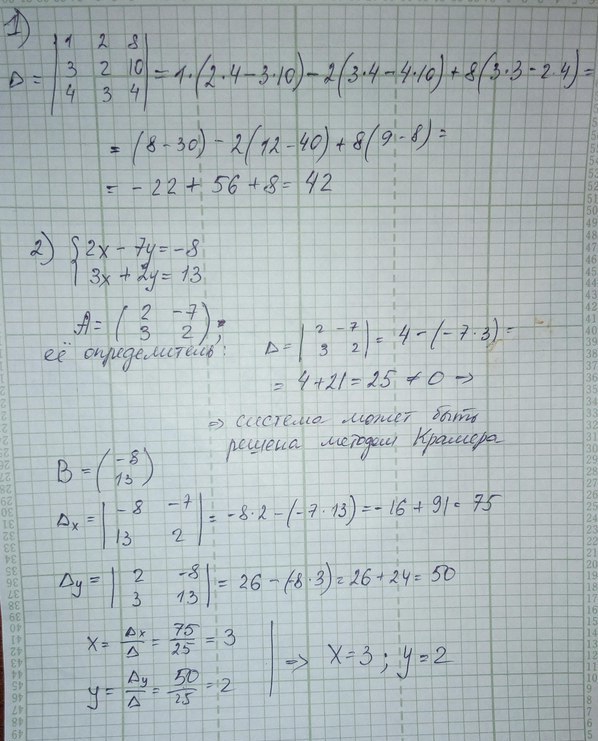 1)
Δ = | 1 2 8 |
| 3 2 10 | = 1·(2·4-3·10)-2(3·4-4·10)+8(3·3-2·4)=
| 4 3 4 |
= (8-30)-2(12-40)+8(9-8)=
= -22+56+8=42
2) { 2x-7y=-8
3x+2y=13
A= ( 2 -7 )
( 3 2 );
её определитель:
Δ= | 2 -7 |
| 3 2 | = 4-(-7·3)=
= 4+21=25 ≠0 ⇒
⇒ система может быть
решена методом Крамера
B= ( -8 )
( 13 )
Δx= | -8 -7 |
| 13 2 | = -8·2-(-7·13)=-16+91=75
Δy= | 2 -8 |
| 3 13 | = 26-(-8·3)=26+24=50
x= Δx/Δ = 75/25 = 3
y= Δy/Δ = 50/25 = 2
⇒ x=3; y=2